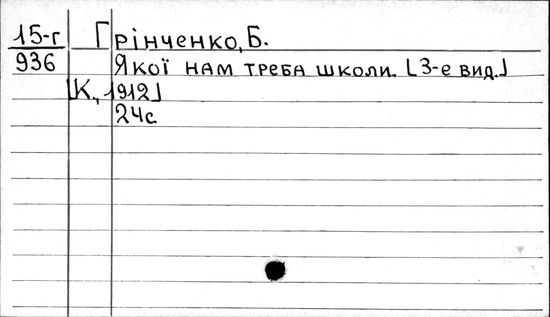 15-г Грінченко, Б.
936 Якої нам треба школи. [3-е вид.]
[К., 1912]
24с.